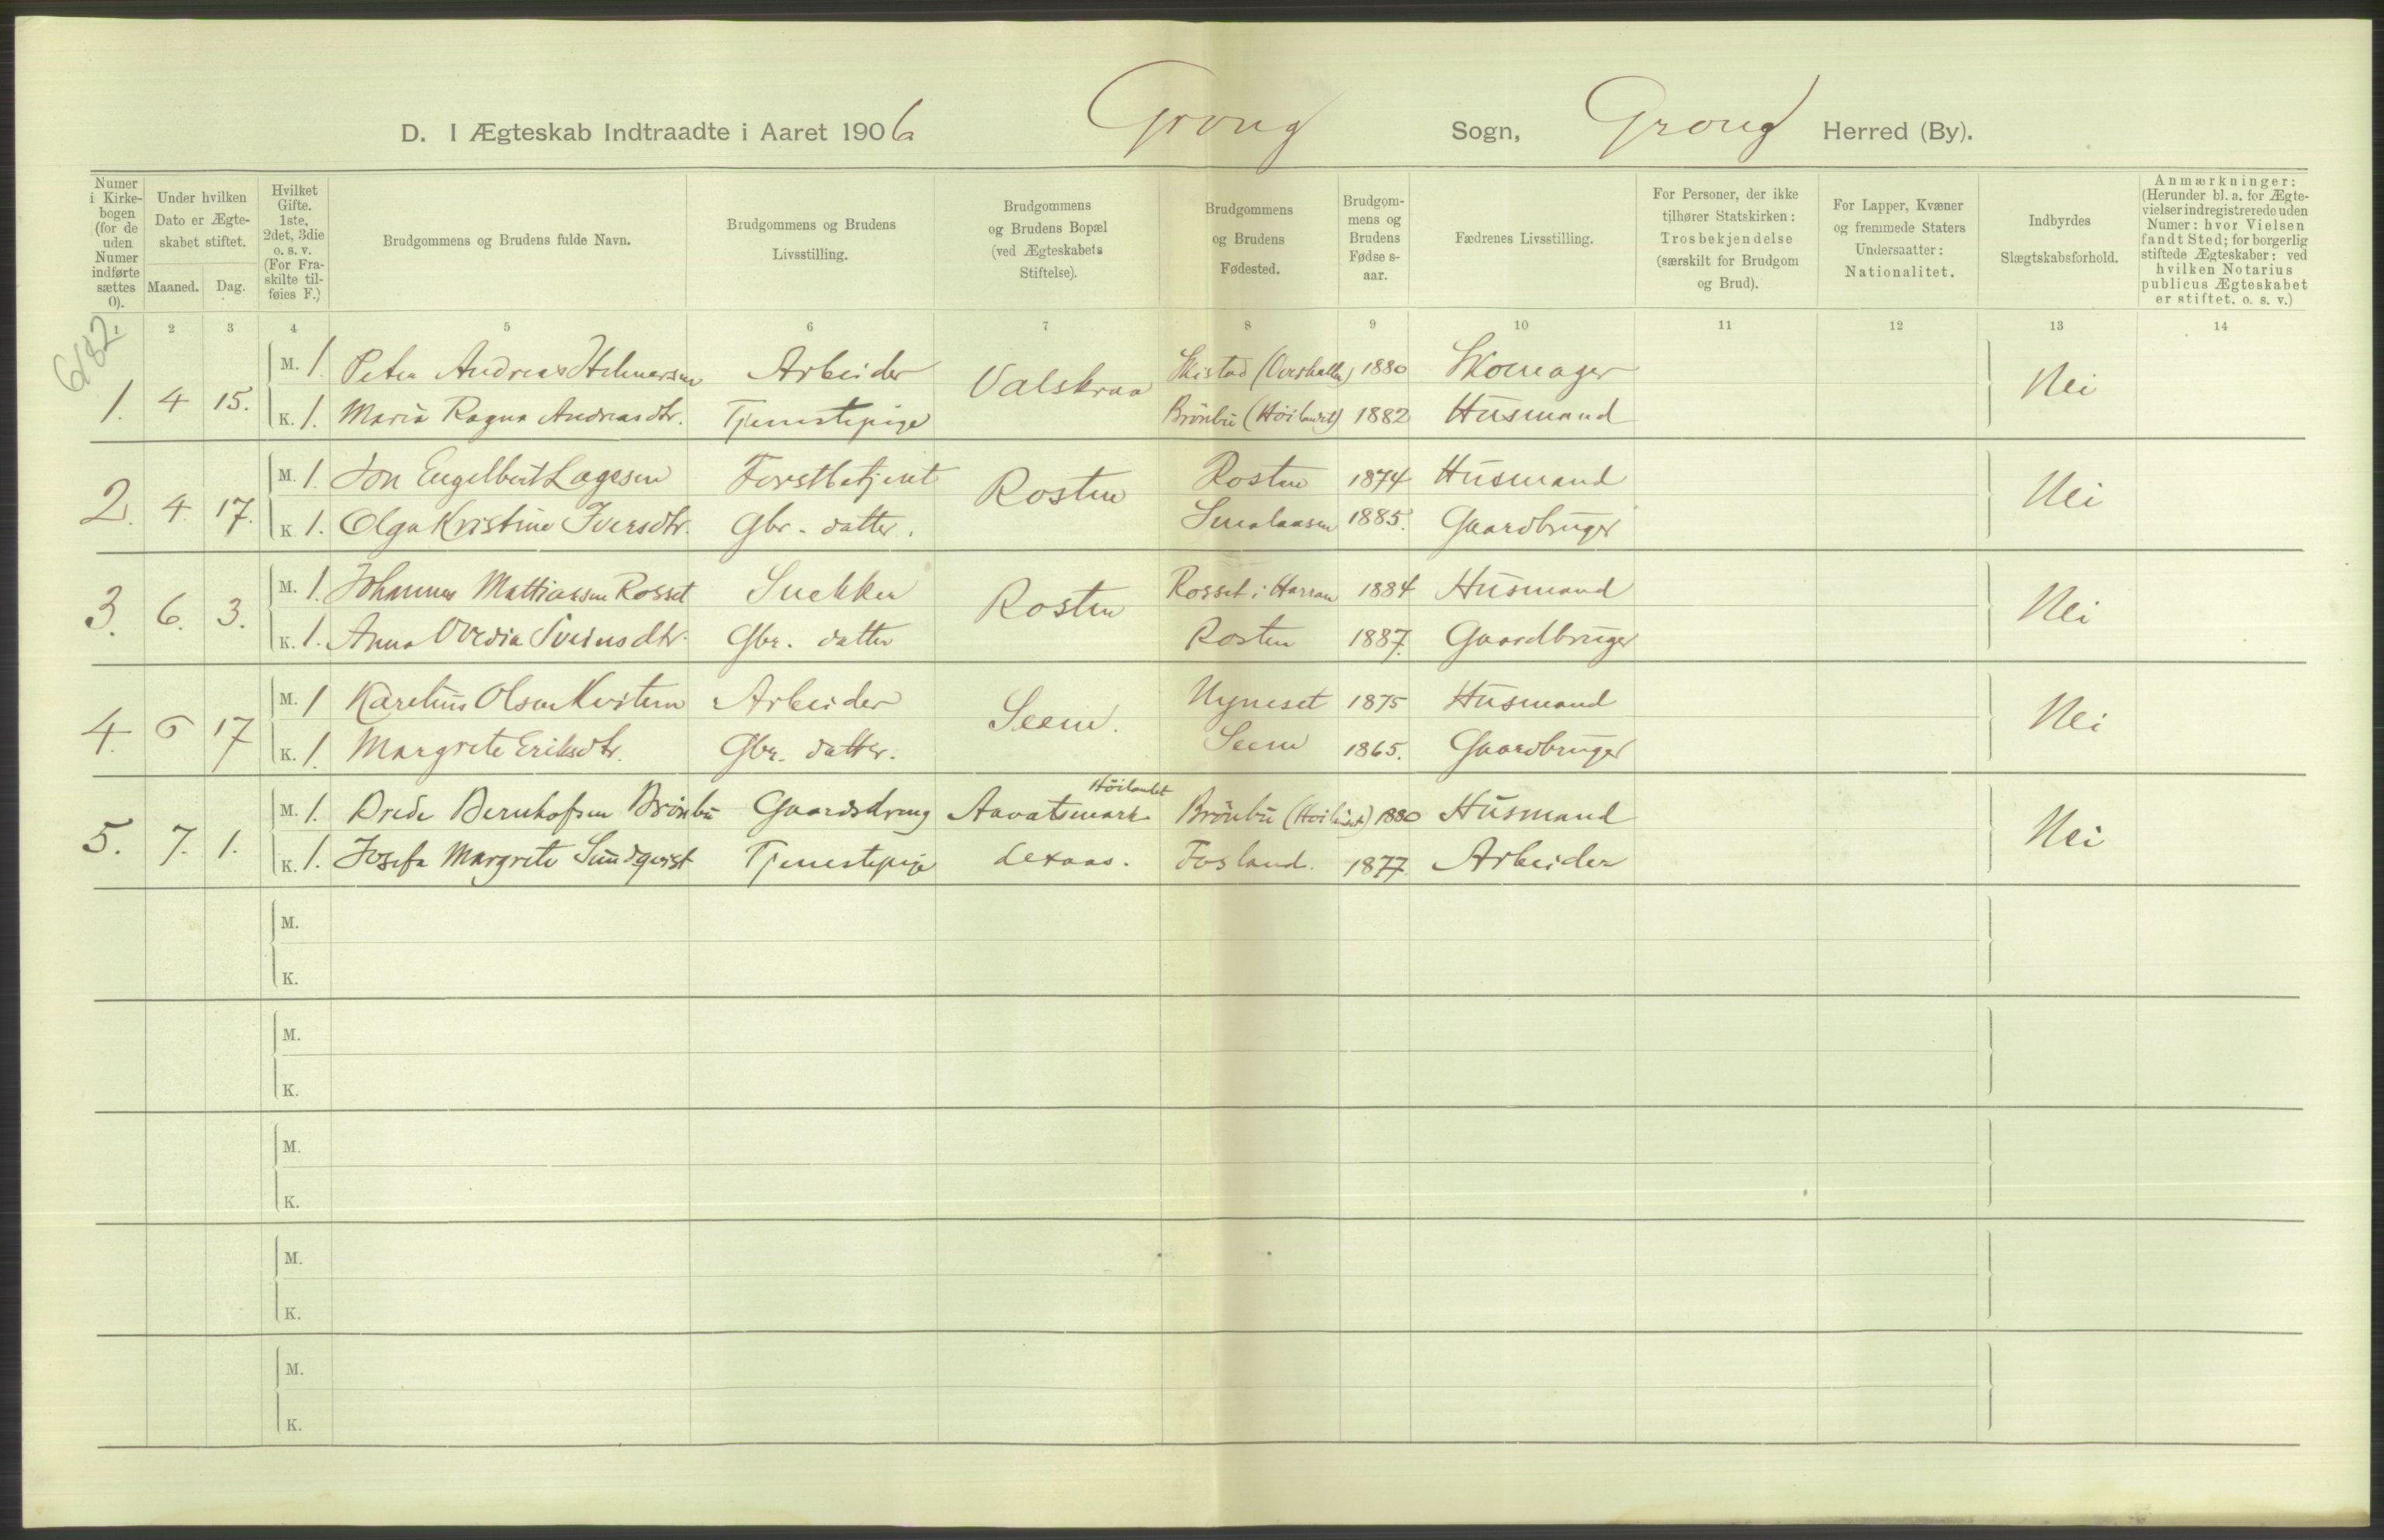 D. I Ægteskab Indtraadte i Aaret 1906 Grong Sogn, Grong Herred (By).
Numer i Kirkebogen (for de uden Numer indførte sættes 0).
Under hvilken Dato er Ægteskabet stiftet.
Maaned. Dag.
Hvilket Gifte. 1ste, 2det, 3die o. s. v. (For Fraskilte tilføies F.)
Brudgommens og Brudens fulde Navn.
Brudgommens og Brudens Livsstilling.
Brudgommens og Brudens Bopæl (ved Ægteskabets Stiftelse).
Brudgommens og Brudens Fødested.
Brudgommens og Brudens Fødselsaar.
Fædrenes Livsstilling.
For Personer, der ikke tilhører Statskirken: Trosbekjendelse (særskilt for Brudgom og Brud).
For Lapper, Kvæner og fremmede Staters Undersaatter: Nationalitet.
Indbyrdes Slægtskabsforhold.
Anmærkninger: (Herunder bl. a. for Ægtevielser indregistrerede uden Numer: hvor Vielsen fandt Sted; for borgerlig stiftede Ægteskaber: ved hvilken Notarius publicus Ægteskabet er stiftet. o. s. v.)
1 2 3 4 5 6 7 8 9 10 11 12 13 14
6182
1. 4 15. M. 1. Peter Andreas Hilmarsen Arbeider Valskraa Skistad (Overhalla) 1880 Skomager Nei
K. 1. Maria Ragna Andreasdtr. Tjenestepige Brönbü (Höilandet) 1882 Husmand
2. 4. 17. M. 1. Jon Engelbert Lagesen Forstbetjent Rosten Rosten 1874 Husmand Nei
K. 1. Olga Kristine Iversdtr. Gbr. datter. Smalaasen 1885. Gaardbruger
3. 6. 3. M. 1. Johannes Mathiasen Rosset Snekker Rosten Rosset i Harran 1884 Husmand Nei
K. 1. Anna Ovedia Sveinsdtr. Gbr. datter Rosten 1887. Gaardbruger
4. 6 17 M. 1 Karelius Olsen Kvitem Arbeider Seem. Nyneset 1875 Husmand Nei
K. 1. Margrete Eriksdtr. Gbr. datter. Seem 1865. Gaardbruger
5. 7. 1. M. 1. Bernhofsen Brönbü Gaardsdreng Aavatsmark Höilandet Brönbü (Höilandet) 1880 Husmand Nei
K. 1. Josefa Margrete Sundqvist Tjenestepige Lexaas. Fosland. 1877. Arbeider
M.
K.
M.
K.
M.
K.
M.
K.
M.
K.